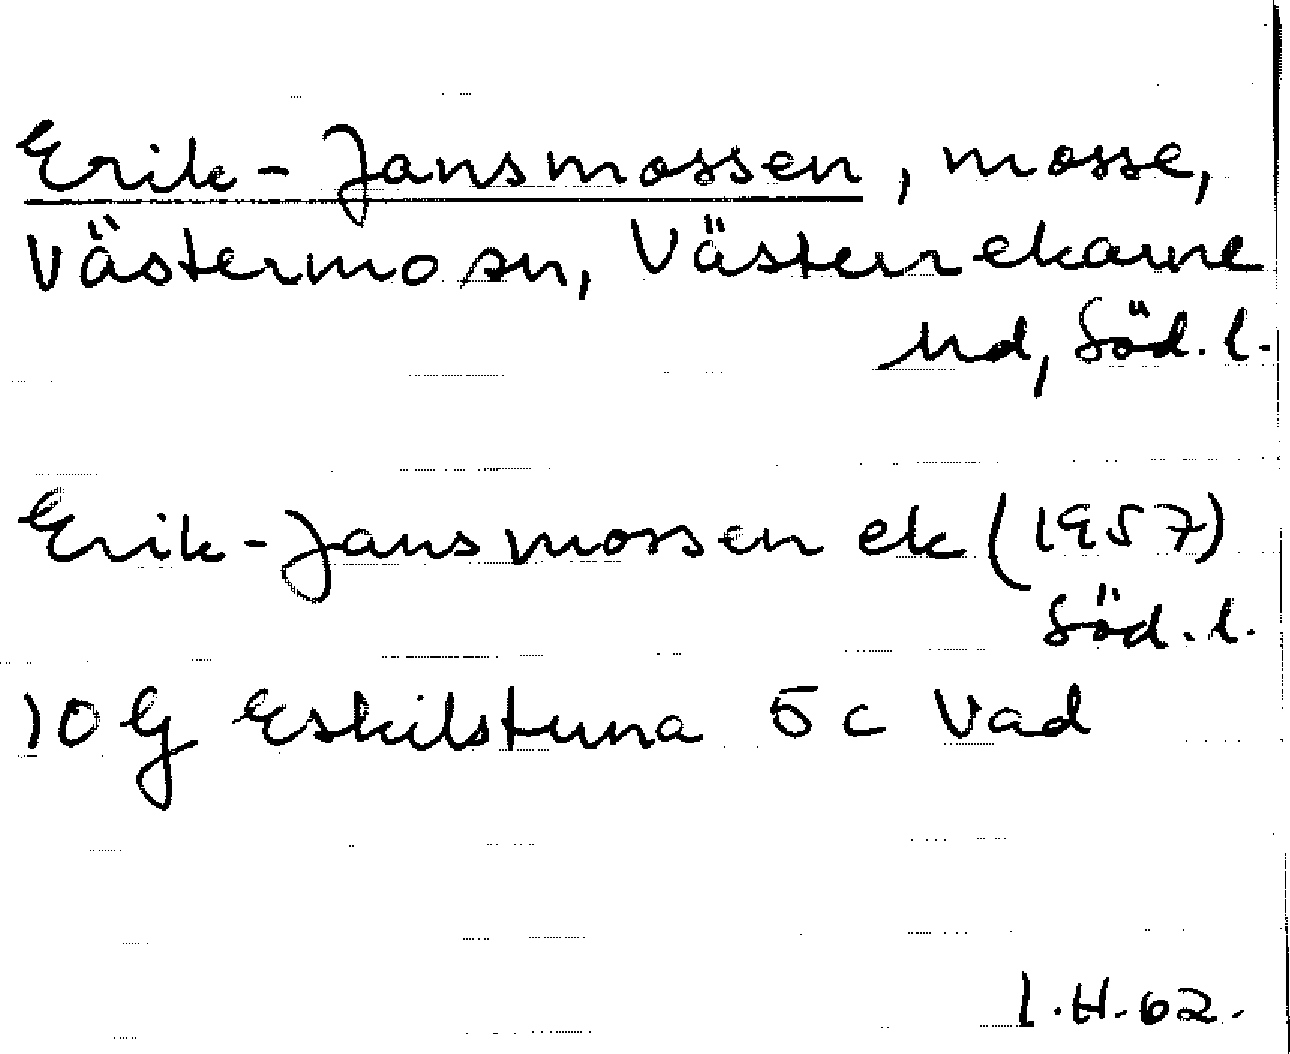 Erik-Jansmossen, mosse,
Västermo sn, Västerrekarne
hd, Söd. l.
Erik-Jansmossen ek (1957)
Söd. l.
10 G Eskilstuna 5c Vad
I.H. 62.